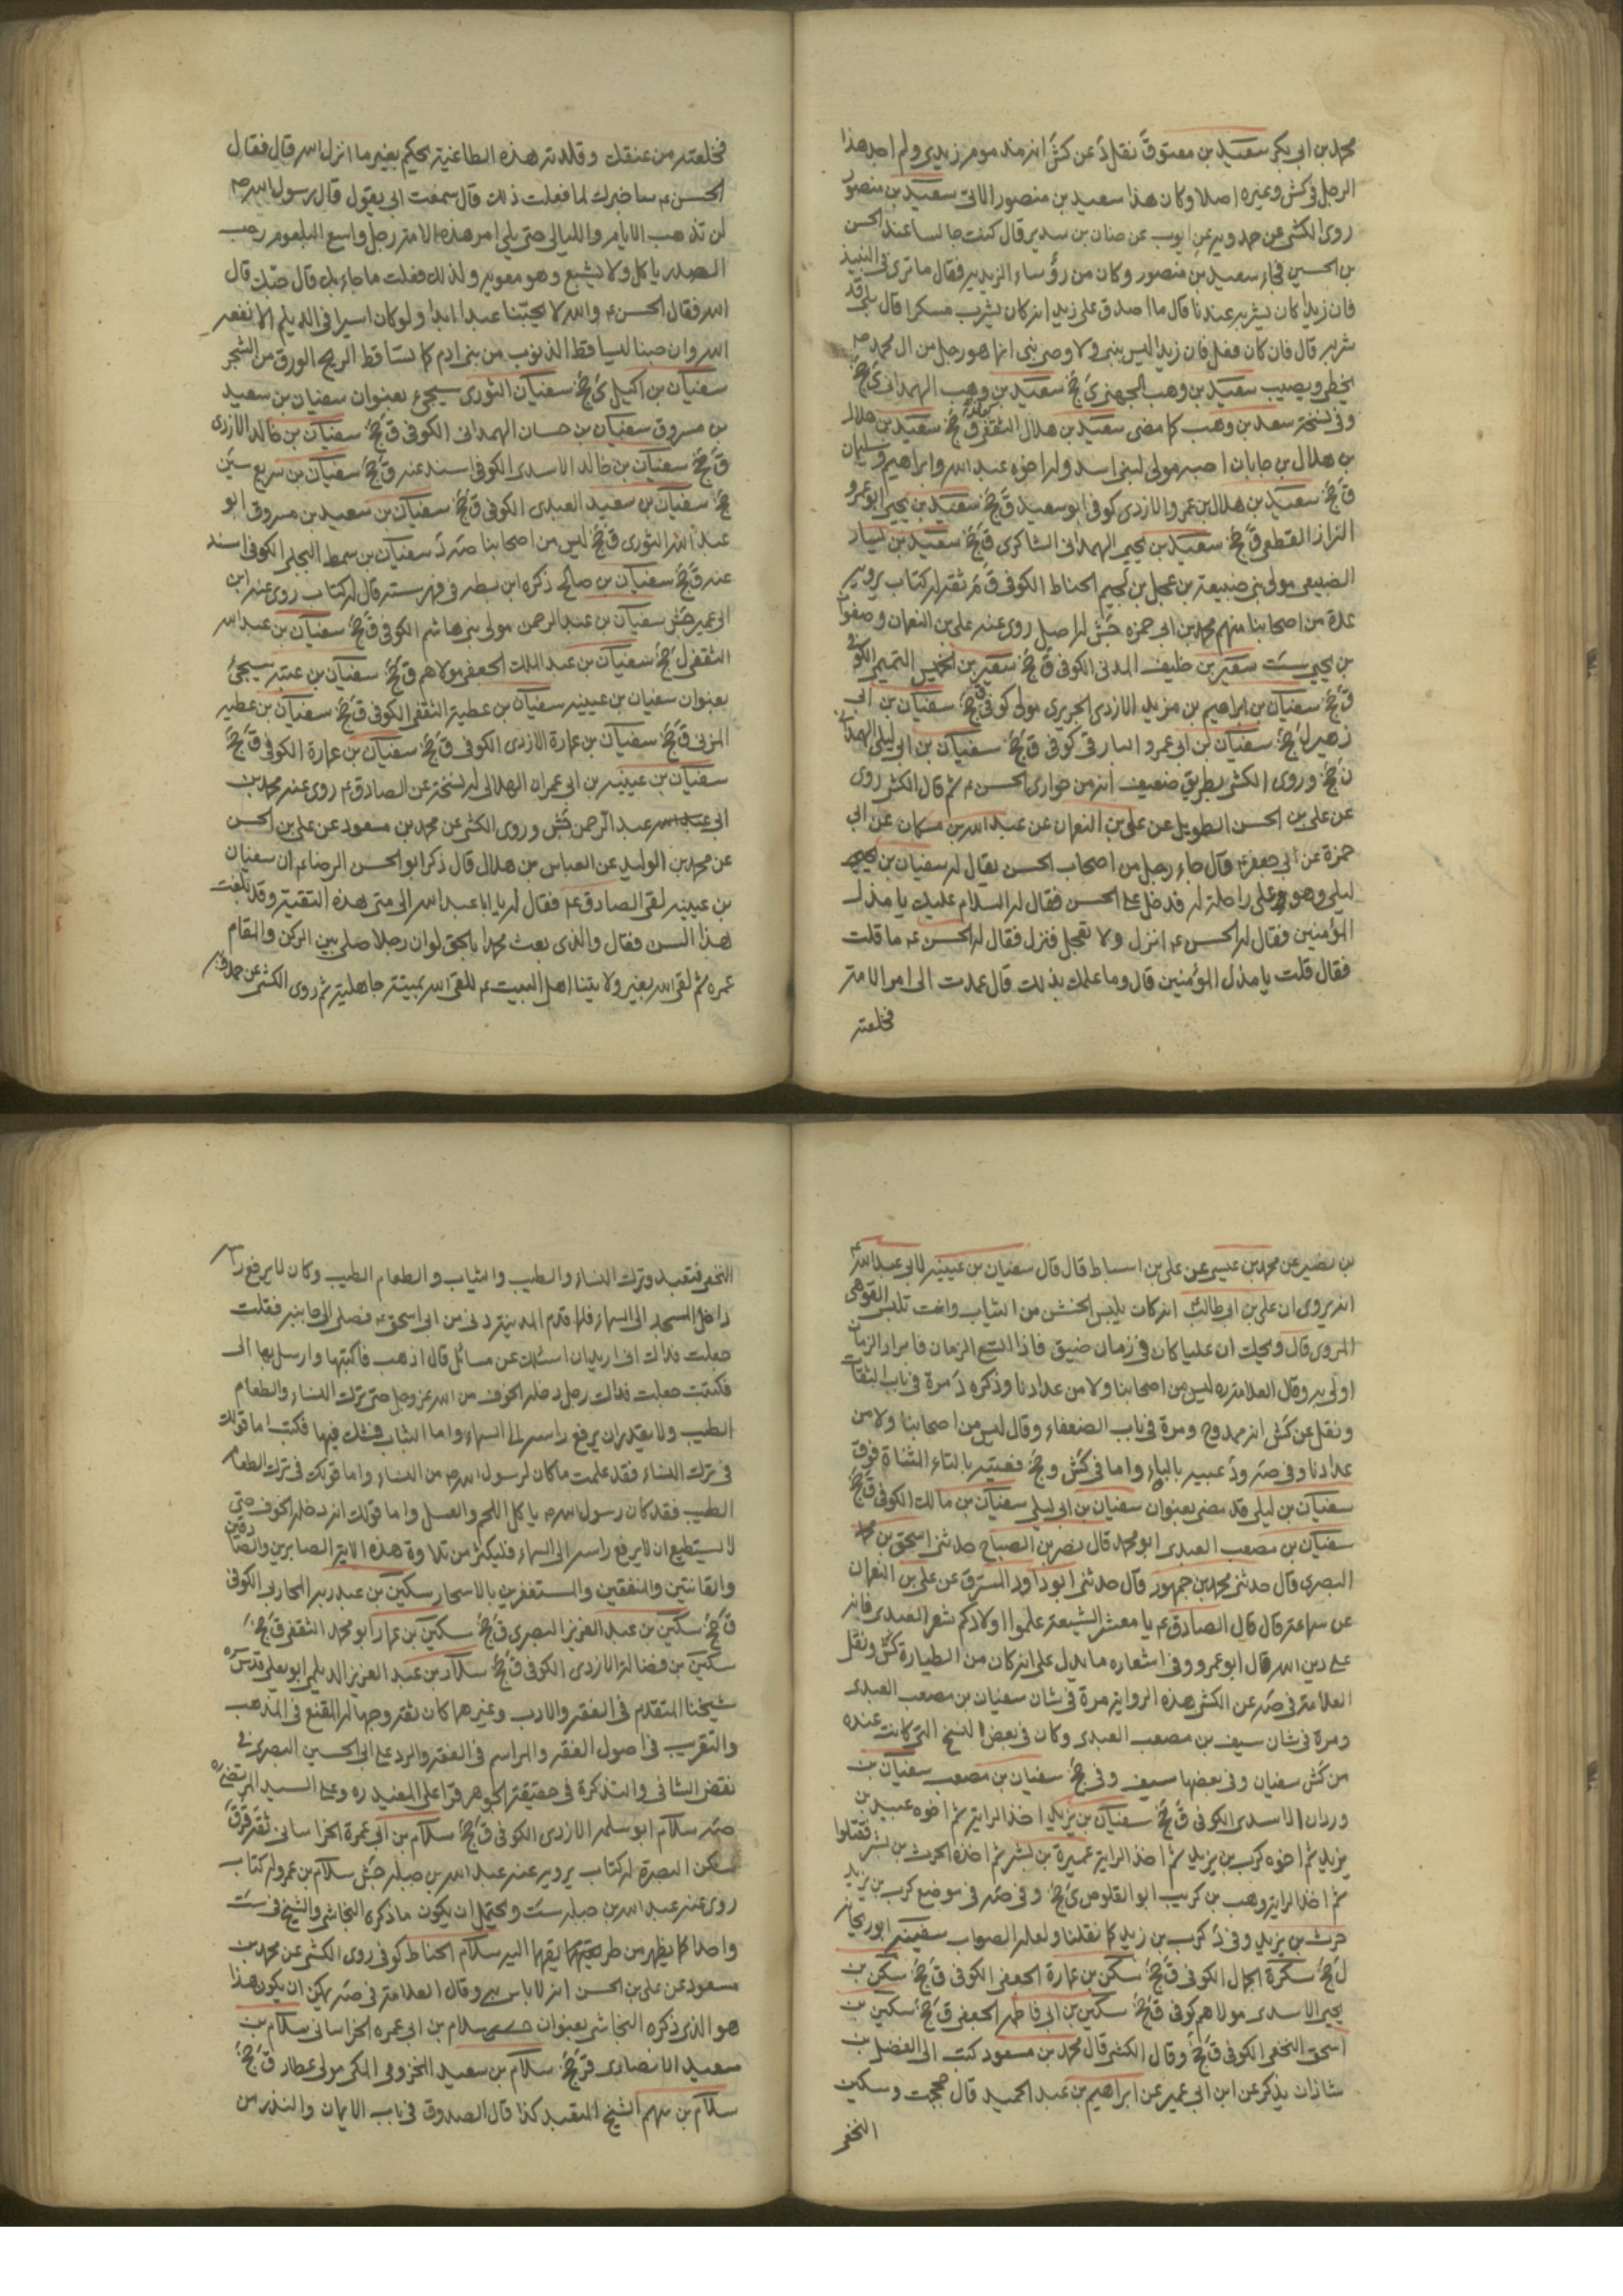 محمد بن ابى بكر سعيد بن معتوق نقل د عن كش انه مذموم زيدى ولم اجد هذا
الرجل فى كش وغيره اصلا وكان هذا سعيد بن منصور الاتى سعيد بن منصور
روى الكشى عن حمدويه عن ايوب عن حنان بن سدير قال كنت جالسا عند الحسن
بن الحسين فجاء سعيد بن منصور وكان من رؤساء الزيديه فقال ما ترى فى النبيذ
فان زيدا كان يشربه عندنا قال ما اصدق على زيد انه كان يشرب مسكرا قال بلى قد
شربه قال فان كان فعل فان زيدا ليس بنبى ولا وصى نبى انما هو رجل من ال محمد ص
يخطى ويصيب سعيد بن وهب الجهنى ى جخ سعيد بن وهب الهمدانى ى جخ
وفى نسخة سعد بن وهب كما مضى سعيد بن هلال الثقفى كوفى ق جخ سعيد بن هلال
بن هلال بن جابان اصبه مولى لبنى اسد وله اخوه عبد الله وابراهيم وسليمان
ق جخ سعيد بن هلال بن عمرو الازدى كوفى ابو سعيد ق جخ سعيد بن يحيى ابو عمرو
البزاز القطعى ق جخ سعيد بن يحيى الهمدانى الشاكرى ق جخ سعيد بن يسار
الضبيعى مولى بنى ضبيعة بن عجل بن لجيم الحناط الكوفى ق م ثقة له كتاب يرويه
عدة من اصحابنا منهم محمد بن ابى حمزه جش له اصل روى عنه على بن النعمان وصفوان
بن يحيى ست سعير بن خليف المدنى الكوفى ق جخ سعير بن الخميس التميمى الكوفى
ق جخ سفيان بن ابراهيم بن مزيد الازدى الجريرى مولى كوفى ق جخ سفيان بن ابى
زهير ل جخ سفيان بن ابى عمرو البارقى كوفى ق جخ سفيان بن ابى ليلى الهمدانى
ن جخ وروى الكشى بطريق ضعيف انه من حوارى الحسن ع ثم قال الكشى روى
عن على بن الحسن الطويل عن على بن النعمان عن عبد الله بن مسكان عن ابى
حمزة عن ابى جعفر ع قال جاء رجل من اصحاب الحسن يقال له سفيان بن
ليلى وهو على راحلة له فدخل على الحسن فقال له السلام عليك يا مذل
المؤمنين فقال له الحسن ع انزل ولا تعجل فنزل فقال له الحسن ع ما قلت
فقال قلت يا مذل المؤمنين قال وما علمك بذلك قال عمدت الى امر الامة
فخلعته
فخلعته من عنقك وقلدته هذه الطاغية يحكم بغير ما انزل الله قال فقال
الحسن ع ساخبرك لما فعلت ذلك قال سمعت ابى يقول قال رسول الله ص
لن تذهب الايام والليالى حتى يلى امر هذه الامة رجل واسع البلعوم رحب
الصدر ياكل ولا يشبع وهو معويه ولذلك فعلت ما جاء بك قال حبك قال
الله فقال الحسن ع والله لا يحبنا عبد ابدا ولو كان اسيرا فى الديلم الا نفعه
الله وان حبنا ليساقط الذنوب من بنى ادم كما تساقط الريح الورق من الشجر
سفيان بن اكيل ى جخ سفيان الثورى سيجئ بعنوان سفيان بن سعيد
بن مسروق سفيان بن حسان الهمدانى الكوفى ق جخ سفيان بن خالد الازدى
ق جخ سفيان بن خالد الاسدى الكوفى اسند عنه ق جخ سفيان بن سريع سين
جخ سفيان بن سعيد العبدى الكوفى ق جخ سفيان بن سعيد بن مسروق ابو
عبد الله الثورى ق جخ ليس من اصحابنا صه د سفيان بن سمط البجلى الكوفى اسند
عنه ق جخ سفيان بن صالح ذكره ابن بطه فى فهرسته قال له كتاب روى عنه ابن
ابى عمير جش سفيان بن عبد الرحمن مولى بنى هاشم الكوفى ق جخ سفيان بن عبد الله
الثقفى ل جخ سفيان بن عبد الملك الجعفى مولاهم ق جخ سفيان بن عتبه سيجئ
بعنوان سفيان بن عيينه سفيان بن عطية الثقفى الكوفى ق جخ سفيان بن عطيه
المزنى ق جخ سفيان بن عمارة الازدى الكوفى ق جخ سفيان بن عمارة الكوفى ق جخ
سفيان بن عيينه بن ابى عمران الهلالى له نسخة عن الصادق ع روى عنه محمد بن
ابى عبد الرحمن جش وروى الكشى عن محمد بن مسعود عن على بن الحسن
عن محمد بن الوليد عن العباس بن هلال قال ذكر ابو الحسن الرضا ع ان سفيان
بن عيينه لقى الصادق ع فقال له يا ابا عبد الله الى متى هذه التقية وقد بلغت
هذا السن فقال والذى بعث محمدا بالحق لو ان رجلا صلى بين الركن والمقام
عمره ثم لقى الله بغير ولايتنا اهل البيت ع للقى الله بميتة جاهلية ثم روى الكشى عن حمدويه
بن نصير عن محمد بن عيسى عن على بن اسباط قال قال سفيان بن عيينه لابى عبد الله ع
انه يروى ان على بن ابى طالب كان يلبس الخشن من الثياب وانت تلبس القوهى
المروى قال ويحك ان عليا كان فى زمان ضيق فاذا اتسع الزمان فابرار الزمان
اولى به وقال العلامة ره ليس من اصحابنا ولا من عدادنا وذكره د مرة فى باب الثقات
ونقل عن كش انه ممدوح ومرة فى باب الضعفاء وقال ليس من اصحابنا ولا من
عدادنا وفى صه ود عيينه بالياء واما فى كش وجخ فعتيبه بالتاء المثناة فوق
سفيان بن ليلى قد مضى بعنوان سفيان بن ابى ليلى سفيان بن مالك الكوفى ق جخ
سفيان بن مصعب العبدى ابو محمد قال نصر بن الصباح حدثنى اسحق بن محمد
البصرى قال حدثنى محمد بن جمهور قال حدثنى ابو داود المسترق عن على بن النعمان
عن سماعة قال قال الصادق ع يا معشر الشيعة علموا اولادكم شعر العبدى فانه
على دين الله قال ابو عمرو وفى اشعاره ما يدل على انه كان من الطيارة كش ونقل
العلامة فى صه عن الكشى هذه الرواية مرة فى شان سفيان بن مصعب العبدى
ومرة فى شان سيف بن مصعب العبدى وكان فى بعض النسخ التى كانت عنده
من كش سفيان وفى بعضها سيف وفى جخ سفيان بن مصعب سفيان بن
وردان الاسدى الكوفى ق جخ سفيان بن يزيد اخذ الراية ثم اخوه عبيد بن
يزيد ثم اخوه كرب بن يزيد ثم اخذ الراية عميرة بن بشر ثم اخذه الحرث بن بشر فقتلوا
ثم اخذ الراية وهب بن كريب ابو القلوص ى جخ وفى صه فى موضع كرب بن يزيد
حرث بن يزيد وفى د كرب بن زيد كما نقلنا ولعله الصواب سفينه ابو ريحانه
ل جخ سكرة الجمال الكوفى ق جخ سكن بن عمارة الجعفى الكوفى ق جخ سكن بن
يحيى الاسدى مولاهم كوفى ق جخ سكين بن ابى فاطمه الجعفى ق جخ سكين بن
اسحق النخعى الكوفى ق جخ وقال الكشى قال محمد بن مسعود كتب الى الفضل بن
شاذان يذكر عن ابن ابى عمير عن ابراهيم بن عبد الحميد قال حججت وسكين
النخعى
النخعى فتعبد وترك النساء والطيب والثياب والطعام الطيب وكان لا يرفع راسه
داخل المسجد الى السماء فلما قدم المدينة دنى من ابى اسحق ع فصلى الى جانبه فقلت
جعلت فداك انى اريد ان اسئلك عن مسائل قال اذهب فاكتبها وارسل بها الى
فكتبت جعلت فداك رجل دخله الخوف من الله عز وجل حتى ترك النساء والطعام
الطيب ولا يقدر ان يرفع راسه الى السماء واما الثياب فشك فيها فكتب اما قولك
فى ترك النساء فقد علمت ما كان لرسول الله ص من النساء واما قولك فى ترك الطعام
الطيب فقد كان رسول الله ص ياكل اللحم والعسل واما قولك انه دخله الخوف حتى
لا يستطيع ان يرفع راسه الى السماء فليكثر من تلاوة هذه الاية الصابرين والصادقين
والقانتين والمنفقين والمستغفرين بالاسحار سكين بن عبد ربه المحاربى الكوفى
ق جخ سكين بن عبد العزيز البصرى ق جخ سكين بن عمار ابو محمد الثقفى ق جخ
سكين بن فضالة الازدى الكوفى ق جخ سلار بن عبد العزيز الديلمى ابو يعلى قدس سره
شيخنا المتقدم فى الفقه والادب وغيرهما كان ثقة وجها له المقنع فى المذهب
والتقريب فى اصول الفقه والمراسم فى الفقه والرد على ابى الحسين البصرى فى
نقض الشافى والتذكرة فى حقيقة الجوهر قرا على المفيد ره وعلى السيد المرتضى ره
صه سلام ابو سلمه الازدى الكوفى ق جخ سلام بن ابى عمرة الخراسانى ثقة ق
سكن البصرة له كتاب يرويه عنه عبد الله بن جبله جش سلام بن عمرو له كتاب
روى عنه عبد الله بن جبله ست ويحتمل ان يكون ما ذكره النجاشى والشيخ فى ست
واحدا كما يظهر من طريقهما اليه سلام الحناط كوفى روى الكشى عن محمد بن
مسعود عن على بن الحسن انه لا باس به وقال العلامة فى صه يمكن ان يكون هذا
هو الذى ذكره النجاشى بعنوان سلام بن ابى عمره الخراسانى سلام بن
سعيد الانصارى ق جخ سلام بن سعيد المخزومى المكى مولى عطار ق جخ
سلام بن سهم الشيخ المتعبد كذا قال الصدوق فى باب الايمان والنذر من